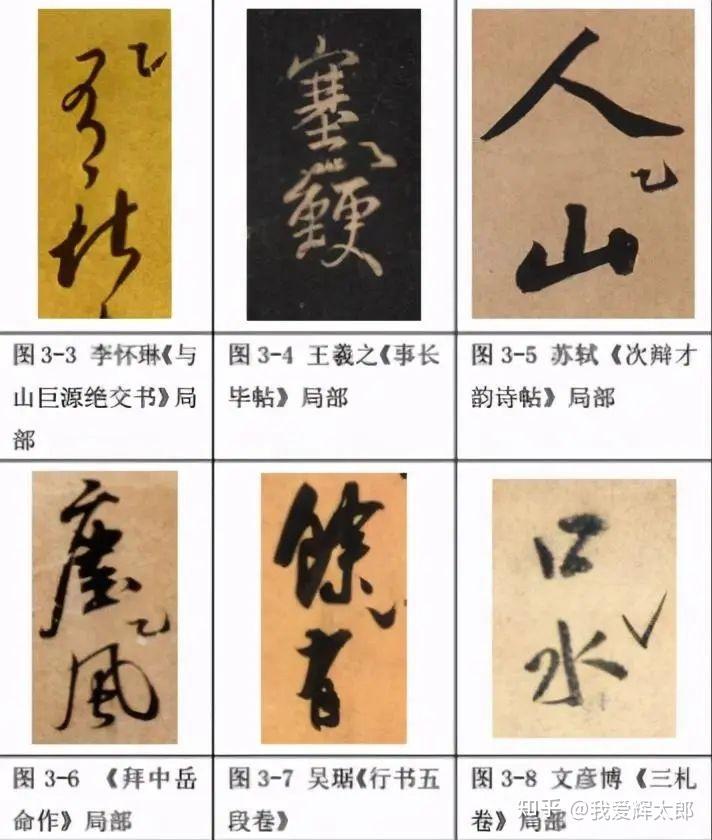 塞
人
山
图 3-3 李怀琳《与
山巨源绝交书》局
部
图 3-4 王羲之《事长
毕帖》局部
图 3-5 苏轼《次辩才
韵诗帖》局部
塵
風
餘
口
水
图 3-6 《拜中岳
命作》局部
图 3-7 吴琚《行书五
段卷》
图 3-8 文彦博《三札
卷》局部
知乎 @我爱辉太郎